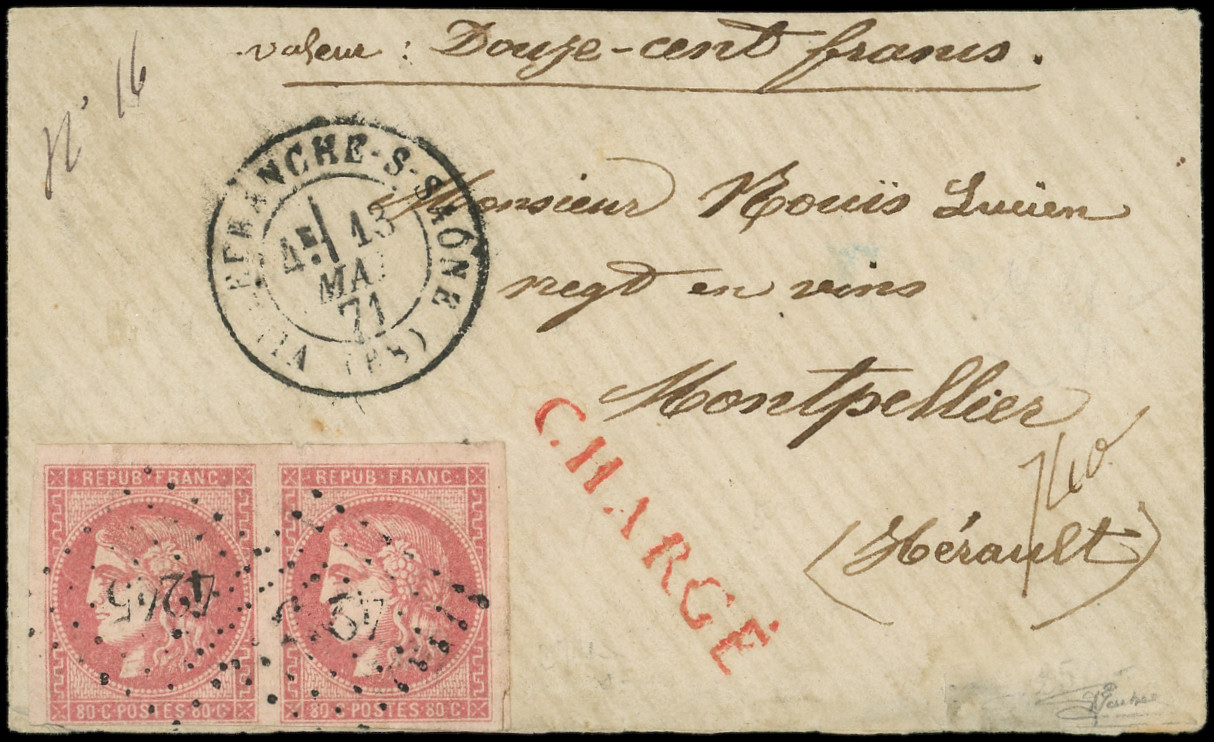 valeur : Douze-cent francs.
N° 16
VILLEFRANCHE-S-SAÔNE (68)
13
MAI
71
Monsieur Rouïs Lucien
negt en vins
Montpellier
(Hérault)
CHARGÉ
REPUB·FRANC·
80·C·POSTES·80·C·
4265
REPUB·FRANC·
80·C·POSTES·80·C·
42